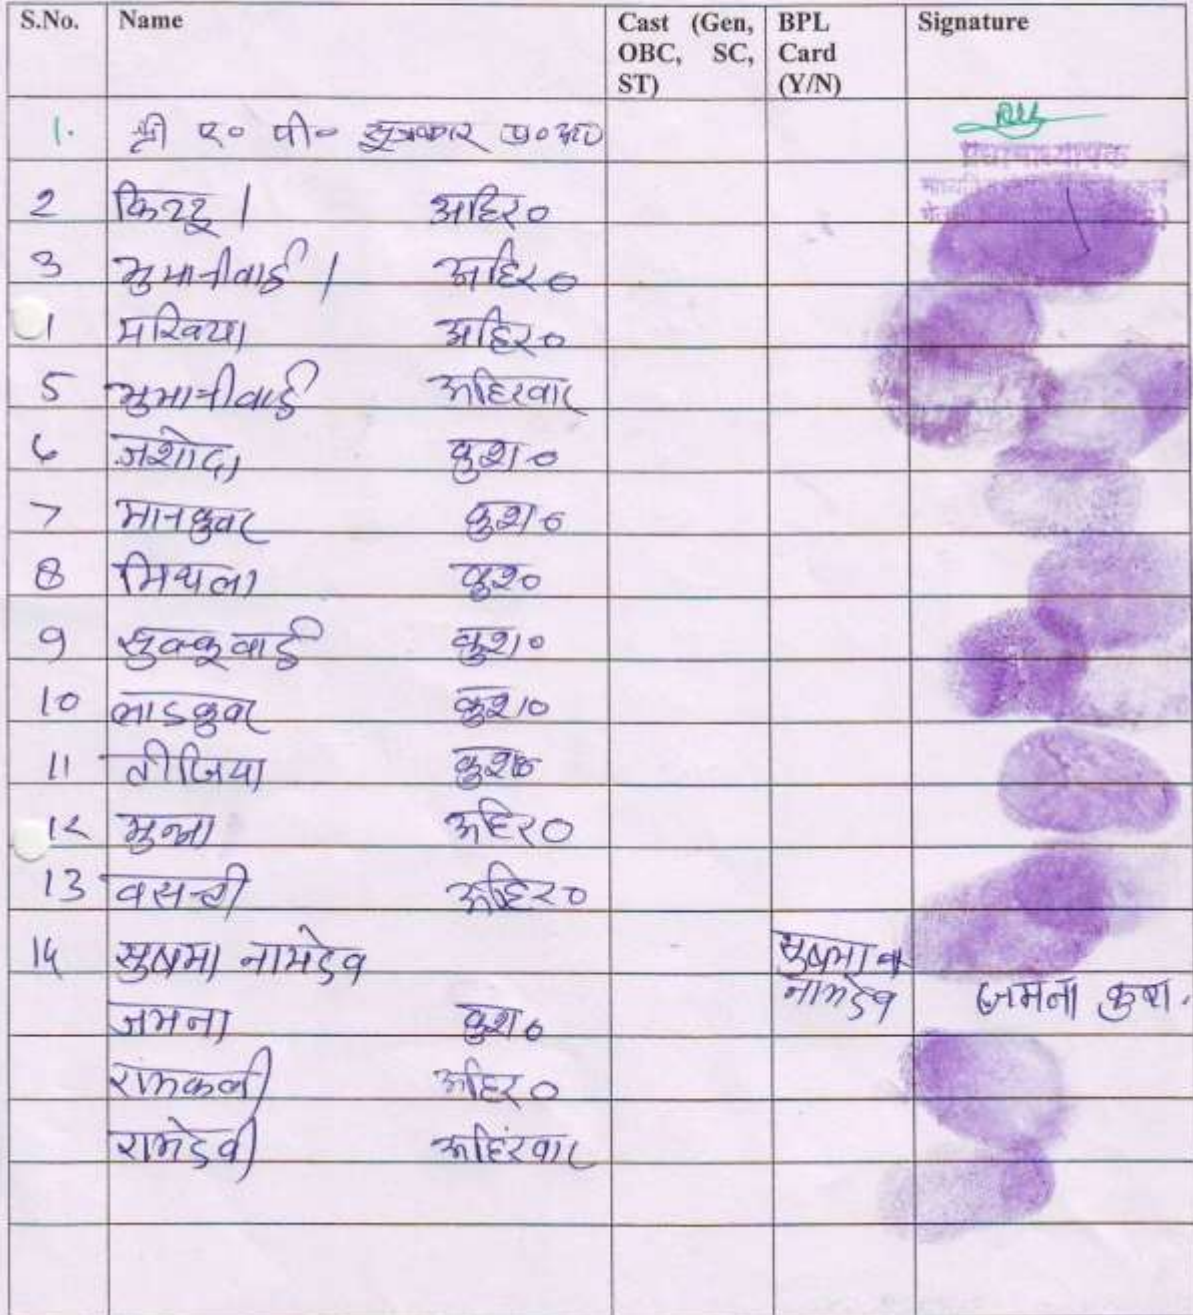 S.No. Name Cast (Gen, OBC, SC, ST) BPL Card (Y/N) Signature
1. श्री ए० पी० सूत्रकार प्र०अ०
प्रधानाध्यापक
2 किट्टू । अहिर०
3 भुमानीवाई । अहिर०
अहिर०
5 भुमानीवाई अहिरवार
6 जशोदा कुश०
7 मानकुवर कुश०
8 मिथला कुश०
9 सुक्कूवाई कुश०
10 लाडकुवर कुश०
11 तीजिया कुश०
12 मुन्ना अहिर०
13 वसन्ती अहिर०
14 सुषमा नामदेव सुषमा
नामदेव जमना कुश.
जमना कुश०
रामकली अहिर०
रामदेवी अहिरवार